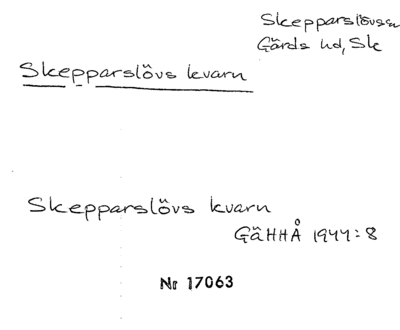 Skepparslövs sn
Gärds hd, Sk
Skepparslövs kvarn
Skepparslövs kvarn
GäHHÅ 1944:8
Nr 17063